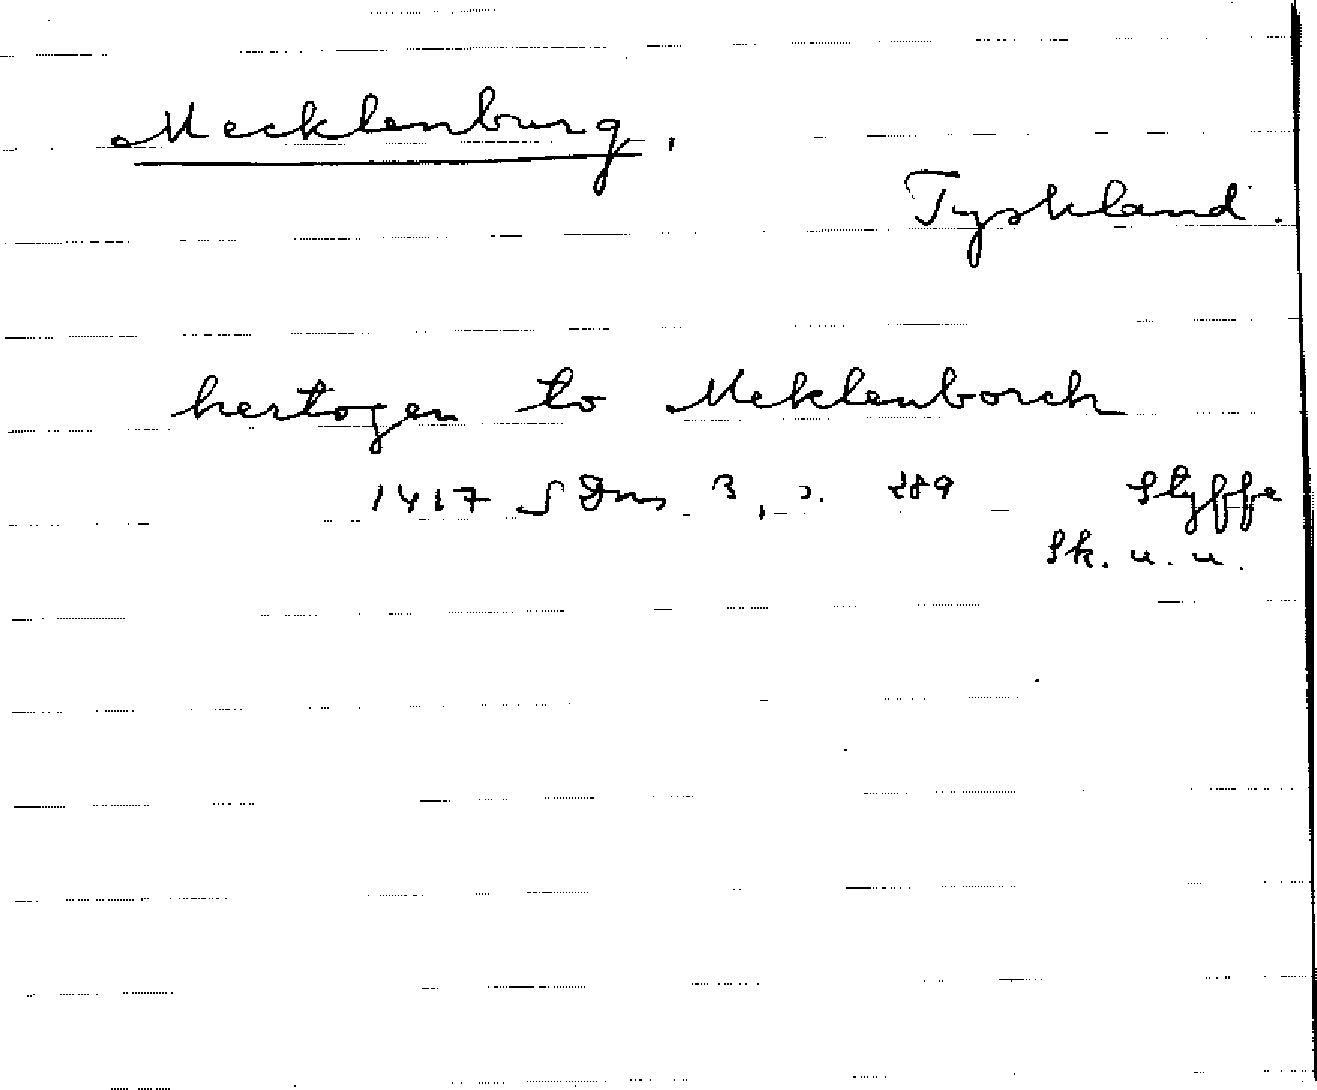 Mecklenburg.
Tyskland.
hertogen to Meklenborch
1417 SDns 3, s. 289 Styffe
Sk. u. u.